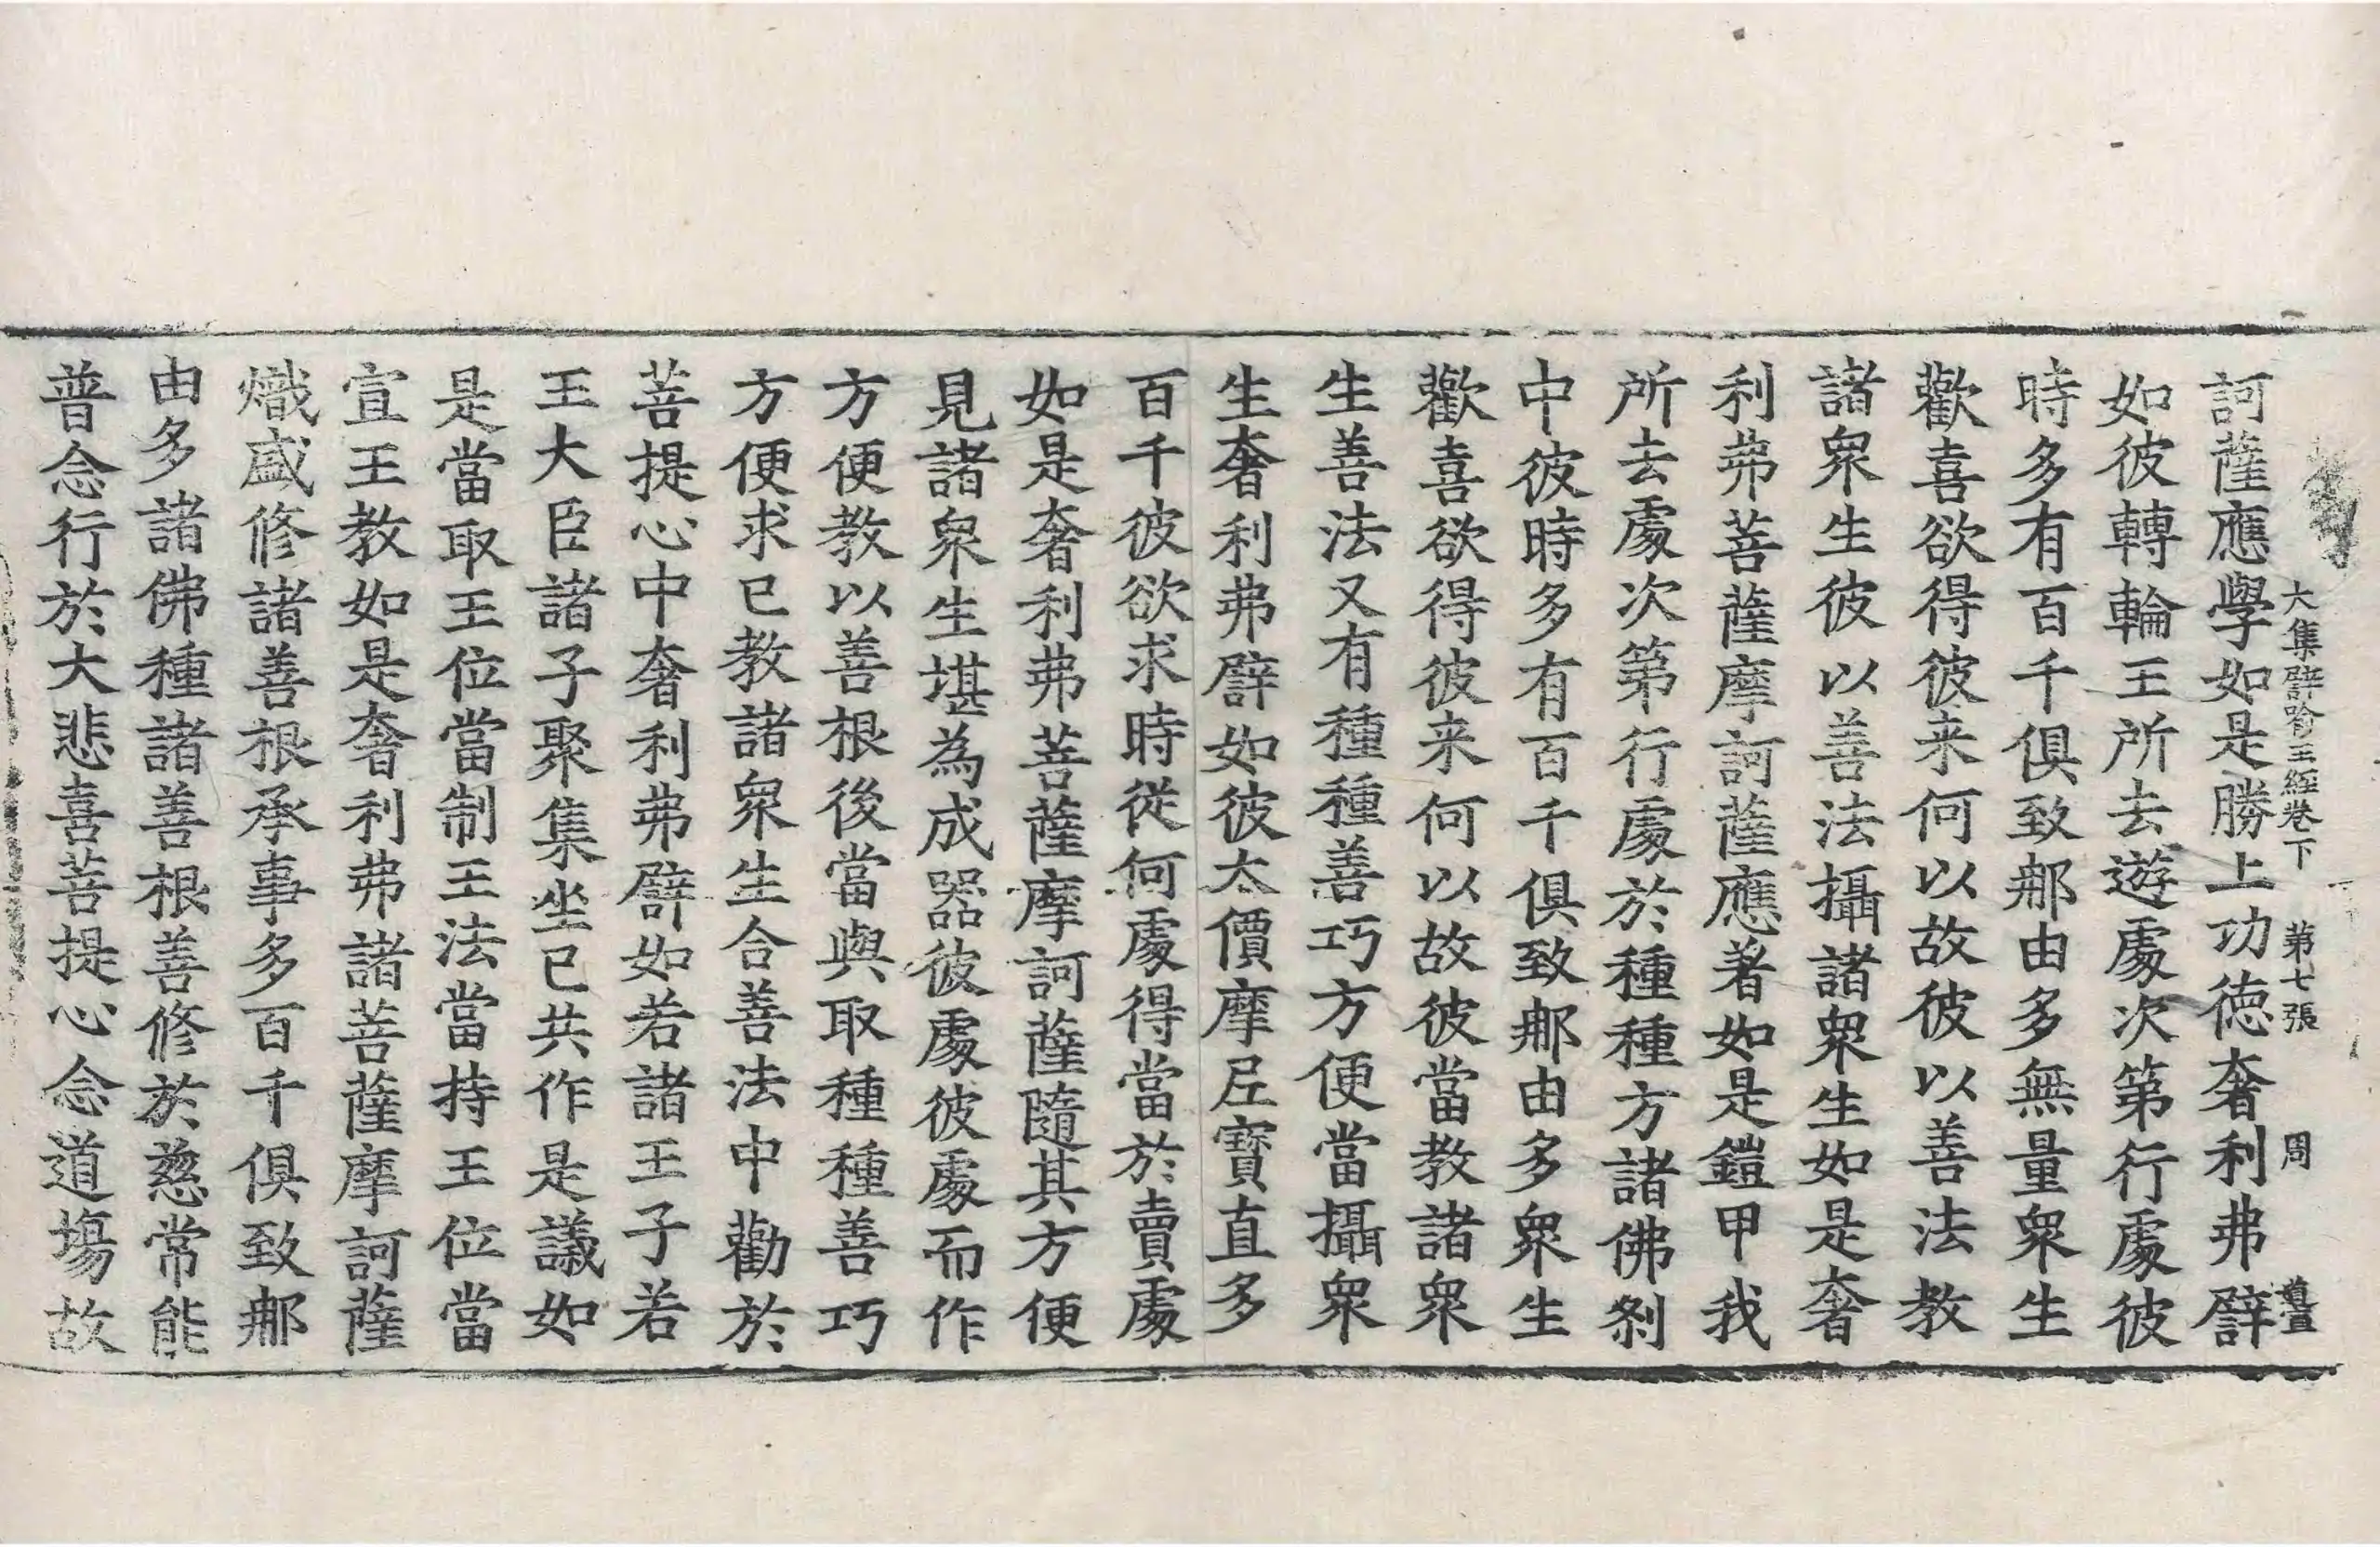 大集譬喻王經卷下 第七張 周
訶薩應學如是勝上功德奢利弗譬
如彼轉輪王所去遊處次第行處彼
時多有百千俱致那由多無量眾生
歡喜欲得彼来何以故彼以善法教
諸眾生彼以善法攝諸眾生如是奢
利弗菩薩摩訶薩應著如是鎧甲我
所去處次第行處於種種方諸佛剎
中彼時多有百千俱致那由多眾生
歡喜欲得彼来何以故彼當教諸眾
生善法又有種種善巧方便當攝眾
生奢利弗譬如彼大價摩尼寶直多
百千彼欲求時從何處得當於賣處
如是奢利弗菩薩摩訶薩隨其方便
見諸眾生堪為成器彼處彼處而作
方便教以善根後當與取種種善巧
方便求已教諸眾生合善法中勸於
菩提心中奢利弗譬如若諸王子若
王大臣諸子聚集坐已共作是議如
是當取王位當制王法當持王位當
宣王教如是奢利弗諸菩薩摩訶薩
熾盛修諸善根承事多百千俱致那
由多諸佛種諸善根善修於慈常能
普念行於大悲喜菩提心念道場故